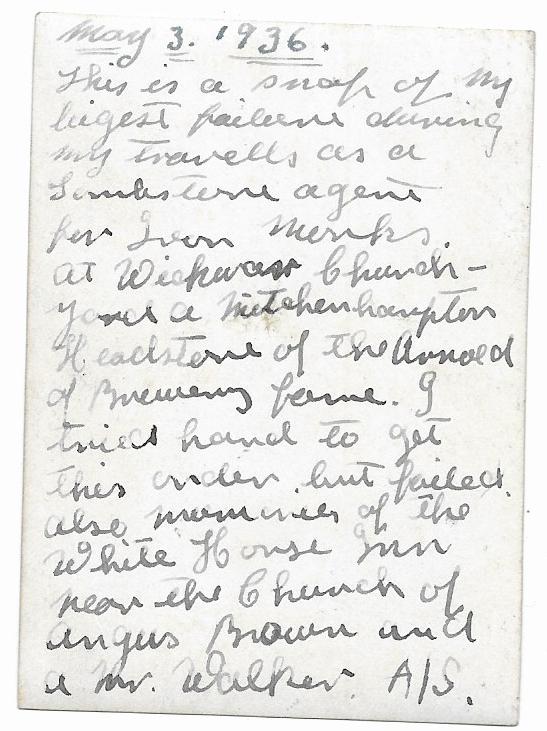 May 3. 1936.
This is a snap of my
bigest failure during
my travells as a
Tombstone agent
for Iron Monks.
at Wickwar Church-
yard a Mitchenhampton
Headstone of the Arnold
of Brewery fame. I
tried hard to get
this order, but failed.
also memories of the
White Horse Inn
near the Church of
Angus Brown and
a Mr. Walker. A/S.